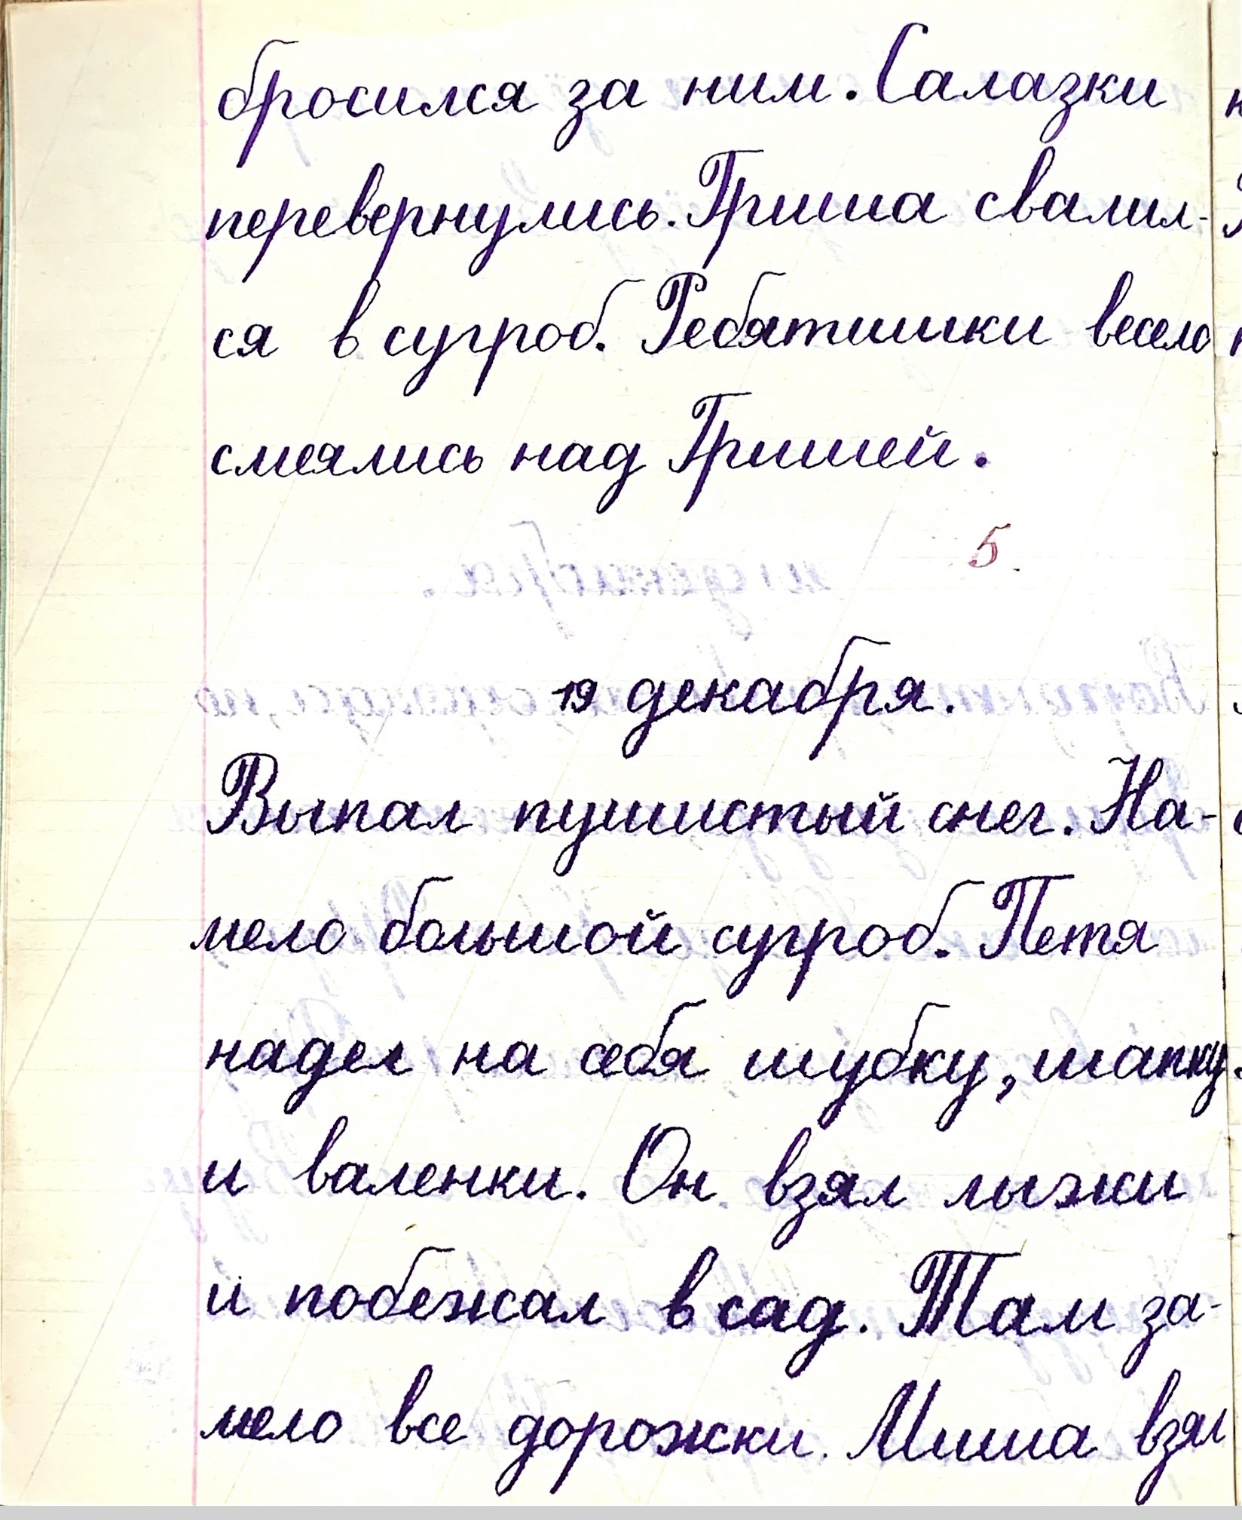 бросился за ним. Салазки
перевернулись. Гриша свалил-
ся в сугроб. Ребятишки весело
смеялись над Гришей.
5
19 декабря.
Выпал пушистый снег. На-
мело большой сугроб. Петя
надел на себя шубку, шапку
и валенки. Он взял лыжи
и побежал в сад. Там за-
мело все дорожки. Миша взял